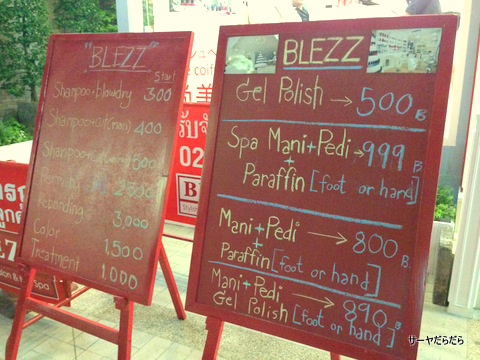 "BLEZZ"
Start
Shampoo+blowdry 300
Shampoo+cut(man) 400
Shampoo+cut 500
Perming 2,500
Rebonding 3,000
Color 1,500
Treatment 1,000
BLEZZ
Gel Polish → 500 B
Spa Mani+Pedi → 999 B
+
Paraffin [foot or hand]
Mani+Pedi → 800 B.
+
Paraffin [foot or hand]
Mani+Pedi → 890 B
+
Gel Polish [foot or hand]
02
サーヤだらだら